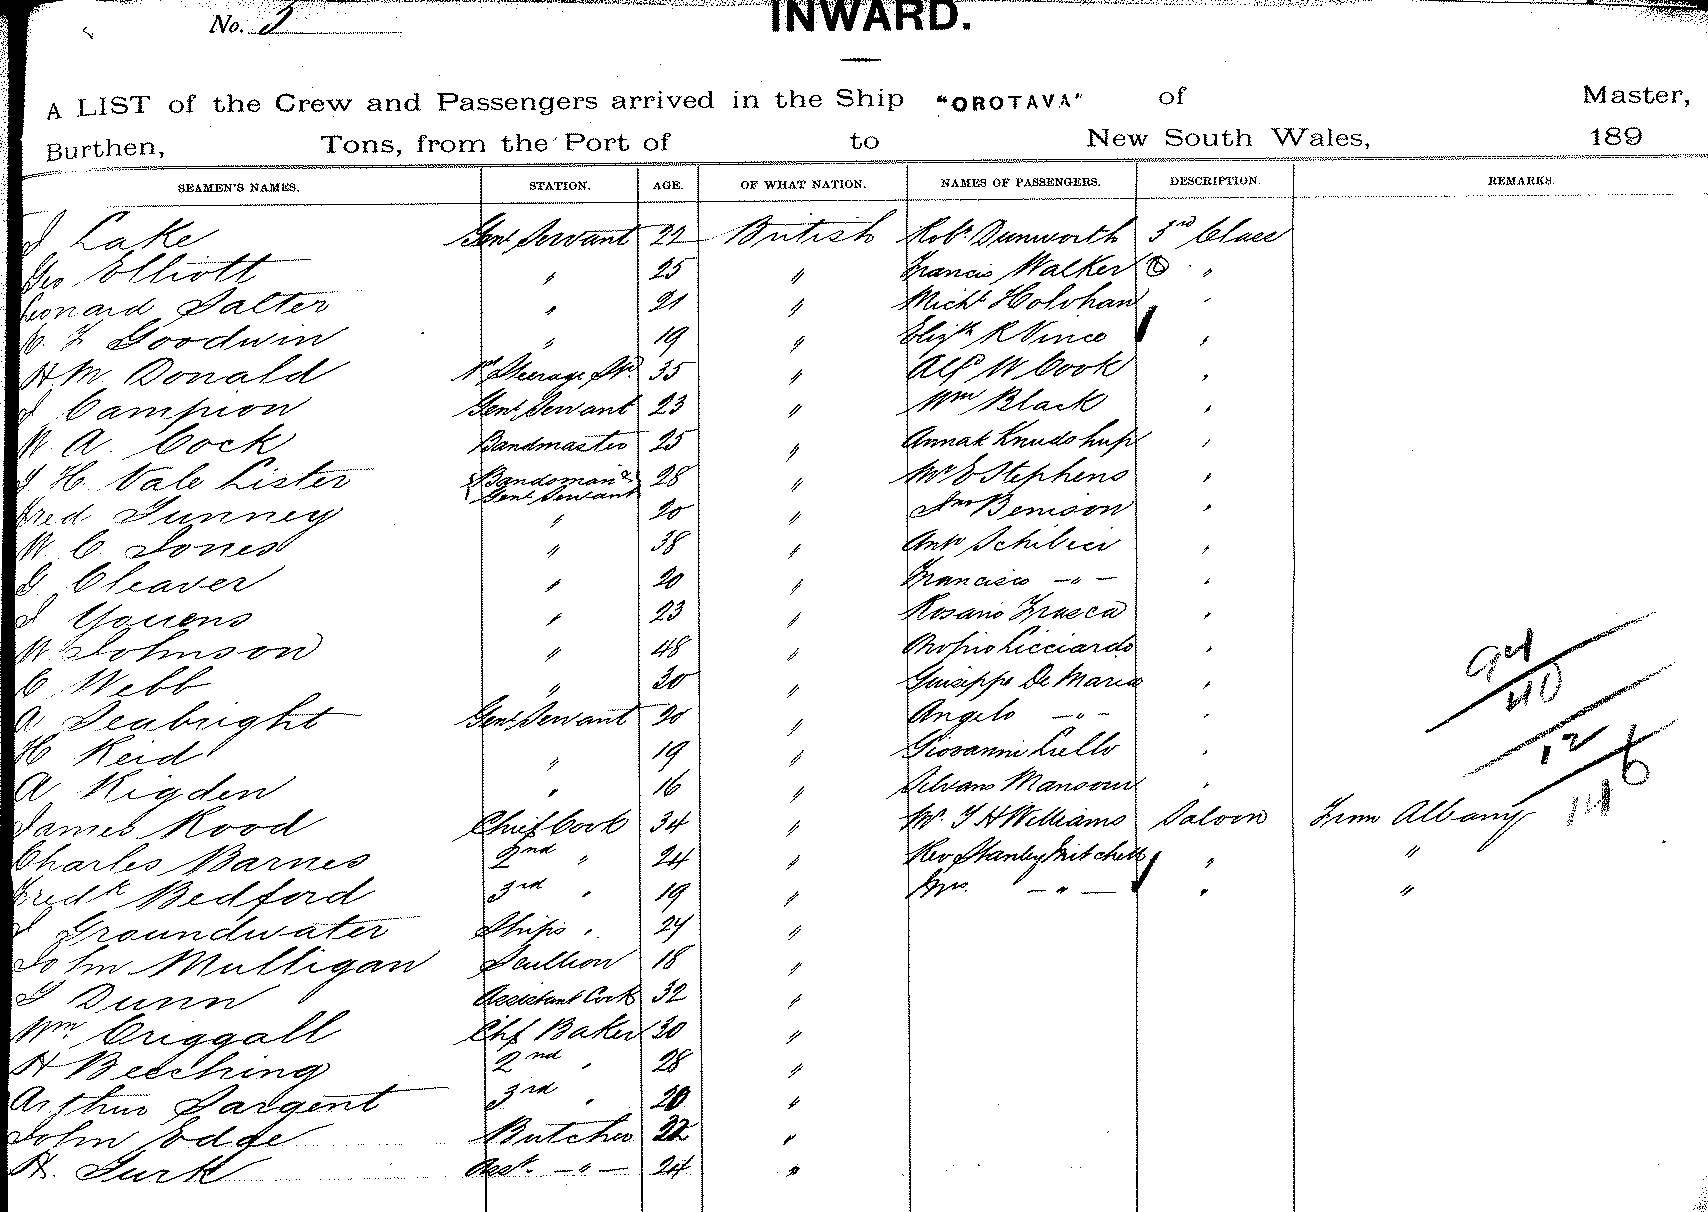 No. 5
INWARD.
A LIST of the Crew and Passengers arrived in the Ship "OROTAVA" of Master,
Burthen, Tons, from the Port of to New South Wales, 189
SEAMEN'S NAMES. STATION. AGE. OF WHAT NATION. NAMES OF PASSENGERS. DESCRIPTION. REMARKS.
J Lake Genl Servant 22 British Robt Dunworth 3rd Class
Geo Elliott " 25 " Francis Walker "
Leonard Salter " 21 " Michl Holohan "
Goodwin " 19 " Elizth R Vince "
H Mc Donald Steerage Std 35 " Alf W Cook "
J Campion Genl Servant 23 " Wm Black "
W A. Cock Bandmaster 25 " "
J H Vale Lister Bandsman & Genl Servant 28 " Mr E Stephens "
Fred Gunney " 20 " Jno Benison "
W C. Jones " 38 " Antn Schibeci "
G Cleaver " 20 " Francisco — " — "
J Youens " 23 " Rosario Frasca "
W Johnson " 48 " Licciardo "
C Webb " 30 " Giuseppe De Maria "
A Seabright Genl Servant 20 " Angelo — " — "
H Reid " 19 " Giovanni "
A Rigden " 16 " Silvano Mansour "
James Rood Chief Cook 34 " Mr. J H Williams Saloon From Albany
Charles Barnes 2nd " 24 " Rev Stanley Mitchell " "
Fredk Bedford 3rd " 19 " Mrs. — " — " "
J Groundwater Ships " 24 "
John Mulligan Scullion 18 "
J Dunn Assistant Cook 32 "
Wm Criggall Chf Baker 30 "
H Beeching 2nd " 28 "
Arthur Sargent 3rd " 20 "
John Edge Butcher 22 "
H. Turk Asst. — " — 24 "
94
40
12
146